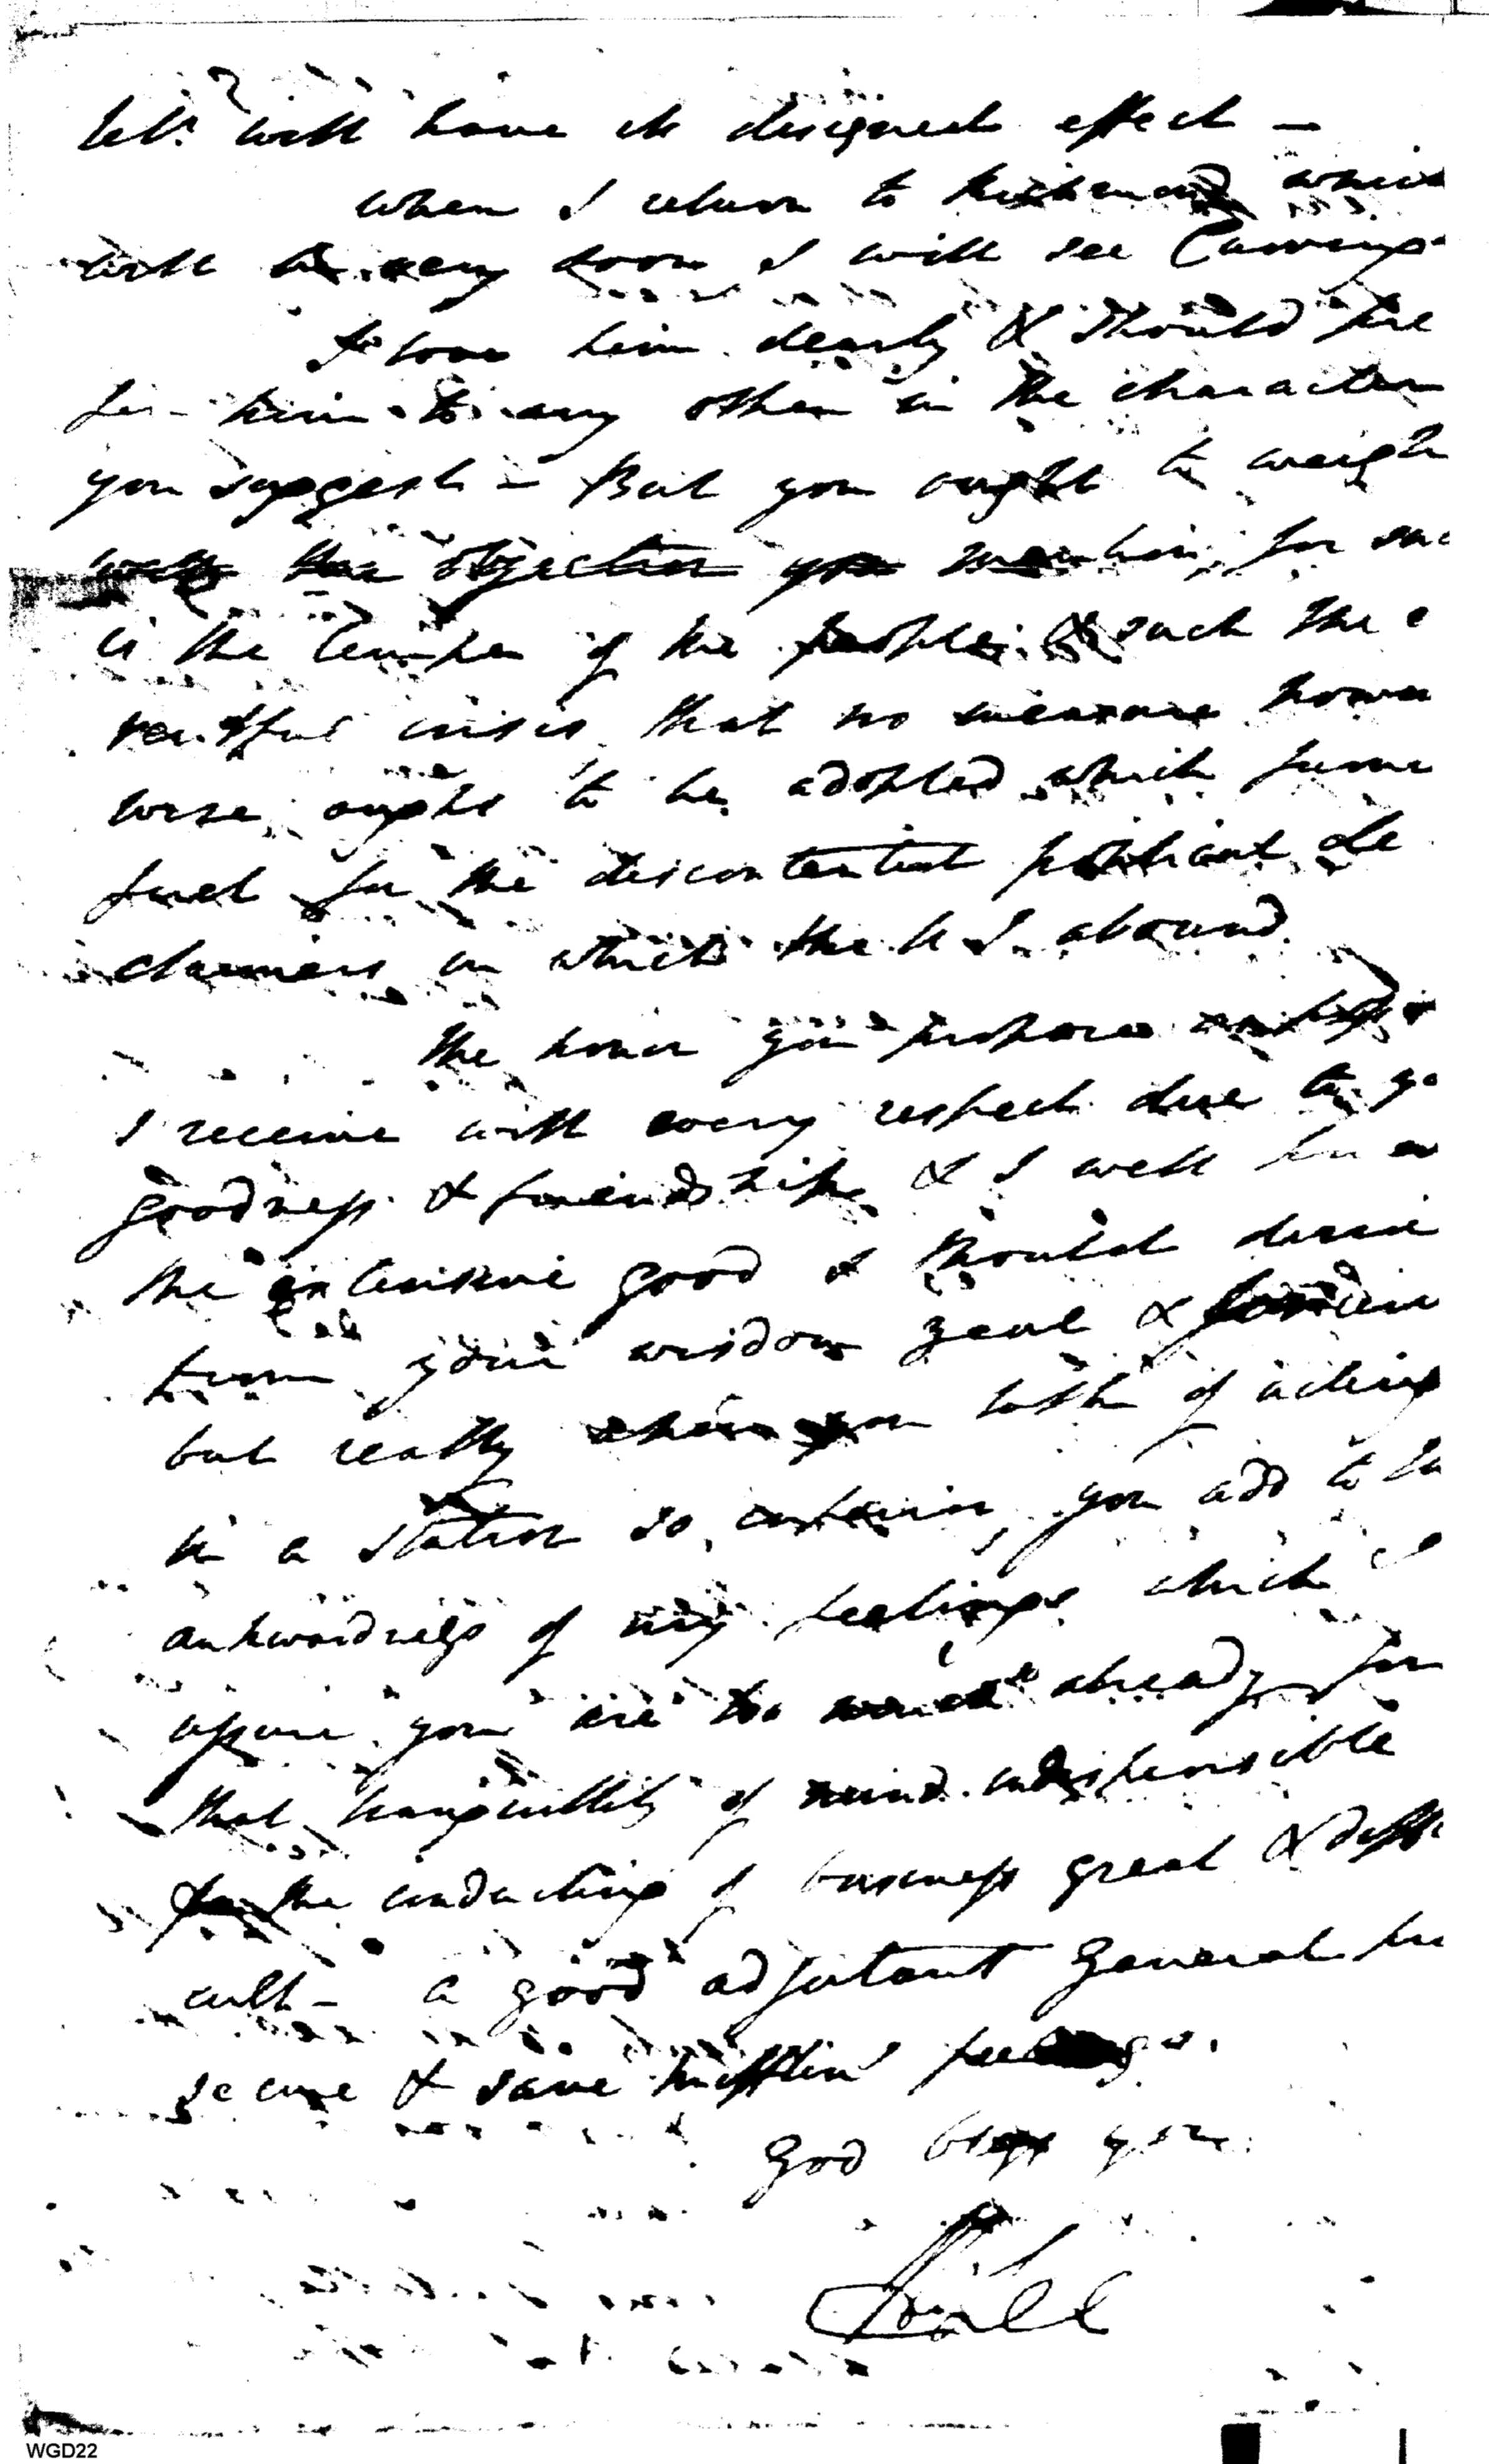 let. will have its designed effect —
when I return to Richmond which
will be very soon I will see Carring
I love him dearly & should pre
fer him to any other in the character
you suggest — But you ought to weigh
well the objection you mention, for suc
is the temper of the people & such the e
ventful crisis that no measure howev
wise ought to be adopted which furni
fuel for the discontented political de
claimers in which the U S. abound.
The honor you propose
I receive with every respect due to yo
goodness & friendship & I well know
the extensive good I should derive
from your wisdom zeal &
but really when you talk of acting
in a station so you add to the
awkwardness of my feelings which I
assure you are too already for
that tranquillity of mind indispensible
for the conducting of business great & diffi
cult — a good adjutant General
secure & save Mifflin's feelings.
God bless you.
WGD22